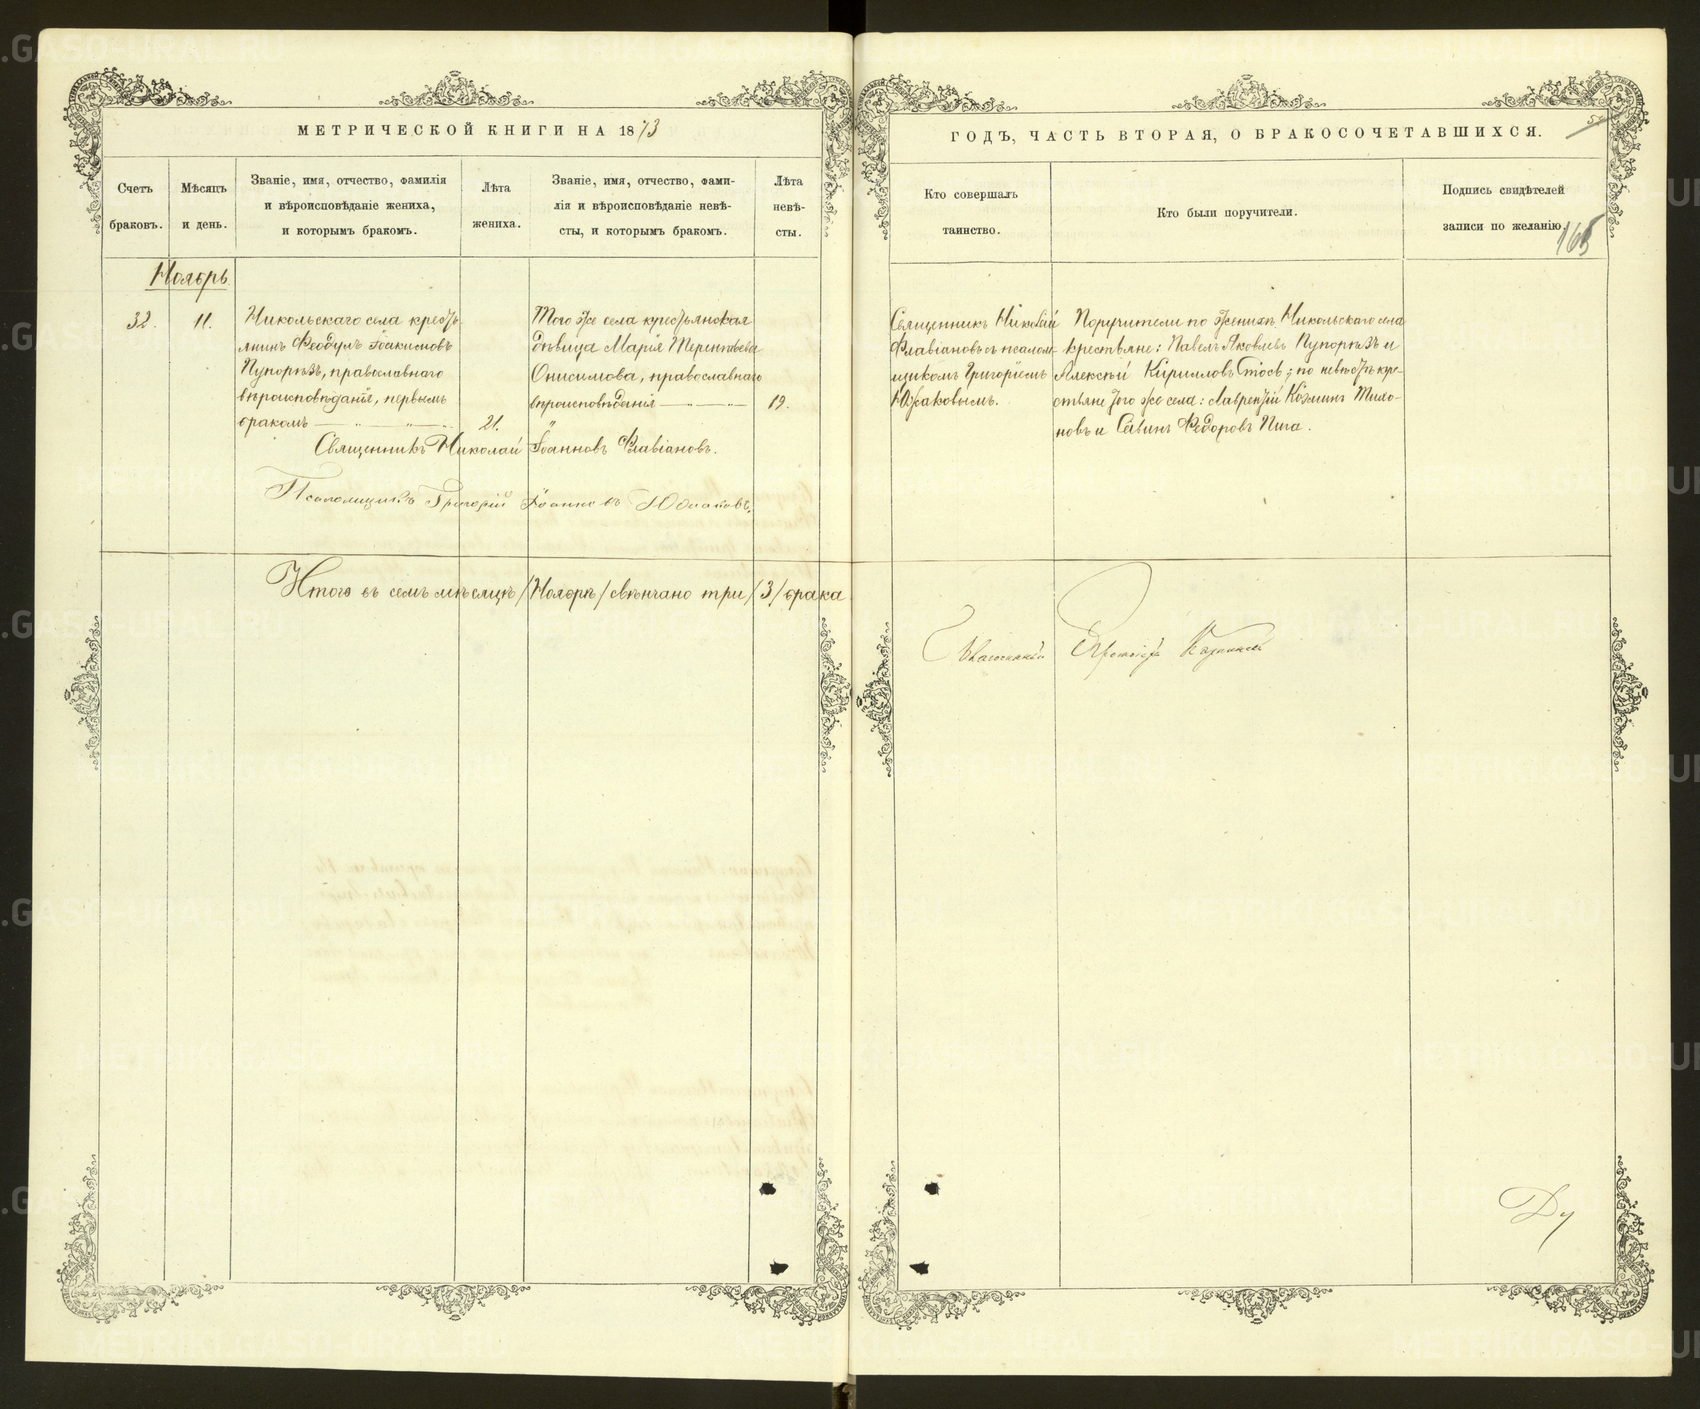 МЕТРИЧЕСКОЙ КНИГИ НА 1873
Счетъ браковъ.
Мѣсяцъ и день.
Званіе, имя, отчество, фамилія
и вѣроисповѣданіе жениха,
и которымъ бракомъ.
Лѣта
жениха.
Званіе, имя, отчество, фами-
лія и вѣроисповѣданіе невѣ-
сты, и которымъ бракомъ.
Лѣта
невѣ-
сты.
Ноябрь
32.
11.
Никольскаго села кресть-
янинъ Ѳеодулъ Іоакимовъ
Пупорѣзъ, православнаго
вѣроисповѣданія, первымъ
бракомъ
21.
Того же села крестьянская
дѣвица Марія Терентьева
Онисимова, православнаго
вѣроисповѣданія
19.
Священникъ Николай Іоанновъ Флавіановъ.
Псаломщикъ Григорій Іоанновъ Южаковъ.
Итого въ семъ мѣсяцѣ /Ноябрѣ/ свѣнчано три /3/ брака
ГОДЪ, ЧАСТЬ ВТОРАЯ, О БРАКОСОЧЕТАВШИХСЯ.
Кто совершалъ
таинство.
Кто были поручители.
Подпись свидѣтелей
записи по желанію.
165
Священникъ Николай
Флавіановъ съ псалом-
щикомъ Григоріемъ
Южаковымъ.
Поручители по женихѣ Никольскаго села
крестьяне: Павелъ Яковлевъ Пупорѣзъ и
Алексѣй Кирилловъ Стосъ; по невѣстѣ кре-
стьяне того же села: Лаврентій Козминъ Тихо-
новъ и Савинъ Ѳедоровъ Пига.
Благочинный Протоіерей